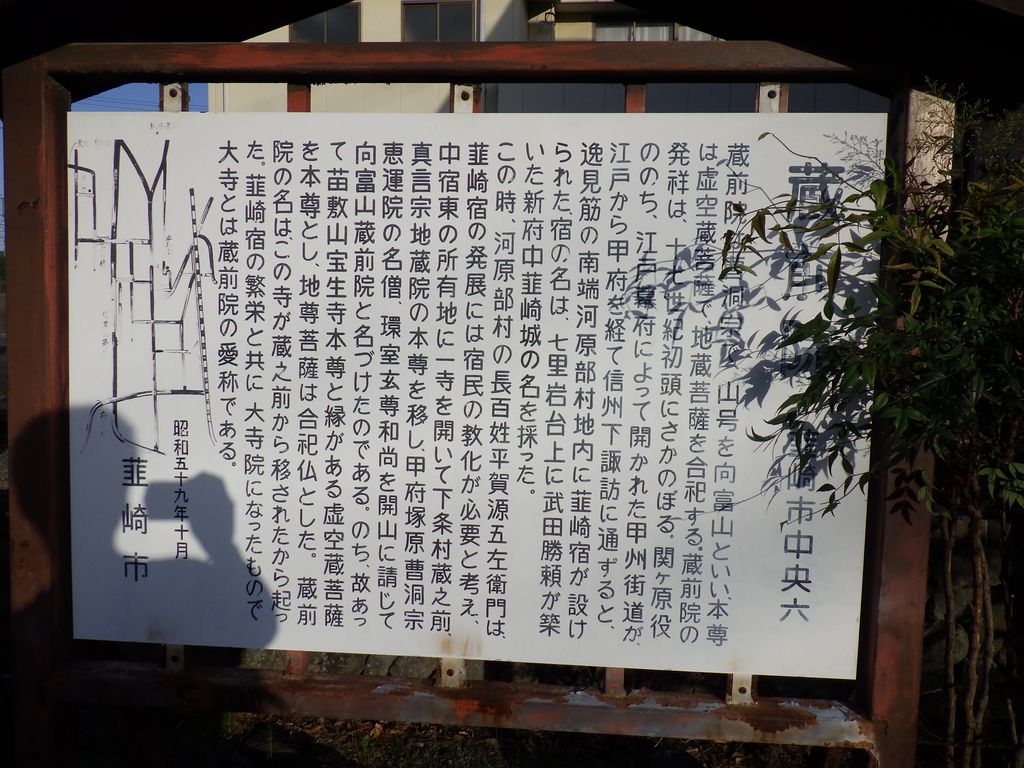 蔵前院 韮崎市中央六
蔵前院 洞宗で山号を向富山といい、本尊
は虚空蔵菩薩で地蔵菩薩を合祀する。蔵前院の
発祥は、十七世紀初頭にさかのぼる。関ヶ原役
ののち、江戸幕府によって開かれた甲州街道が、
江戸から甲府を経て信州下諏訪に通ずると、
逸見筋の南端河原部村地内に韮崎宿が設け
られた。宿の名は、七里岩台上に武田勝頼が築
いた新府中韮崎城の名を採った。
この時、河原部村の長百姓平賀源五左衛門は、
韮崎宿の発展には宿民の教化が必要と考え、
中宿東の所有地に一寺を開いて下条村蔵之前、
真言宗地蔵院の本尊を移し、甲府塚原曹洞宗
恵運院の名僧、環室玄尊和尚を開山に請じて
向富山蔵前院と名づけたのである。のち、故あっ
て苗敷山宝生寺本尊と縁がある虚空蔵菩薩
を本尊とし、地尊菩薩は合祀仏とした。蔵前
院の名はこの寺が蔵之前から移されたから起っ
た。韮崎宿の繁栄と共に大寺院になったもので
大寺とは蔵前院の愛称である。
昭和五十九年十月
韮崎市